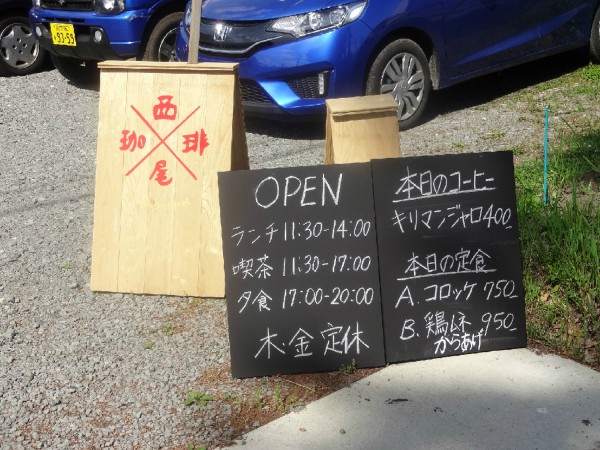 93-59
西
珈 琲
尾
OPEN
ランチ 11:30-14:00
喫茶 11:30-17:00
夕食 17:00-20:00
木・金 定休
本日のコーヒー
キリマンジャロ400
本日の定食
A. コロッケ 750
B. 鶏ムネ 950
からあげ